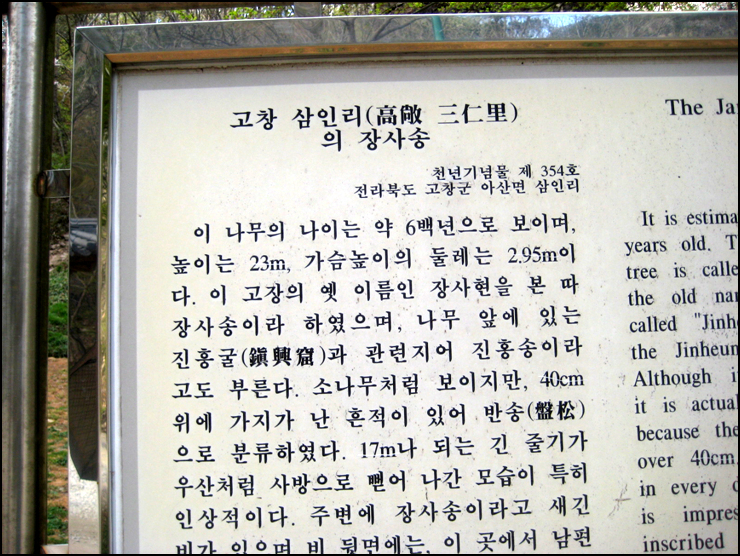 고창 삼인리(高敞 三仁里)
의 장사송
천년기념물 제 354호
전라북도 고창군 아산면 삼인리
이 나무의 나이는 약 6백년으로 보이며,
높이는 23m, 가슴높이의 둘레는 2.95m이
다. 이 고장의 옛 이름인 장사현을 본 따
장사송이라 하였으며, 나무 앞에 있는
진흥굴(鎭興窟)과 관련지어 진흥송이라
고도 부른다. 소나무처럼 보이지만, 40cm
위에 가지가 난 흔적이 있어 반송(盤松)
으로 분류하였다. 17m나 되는 긴 줄기가
우산처럼 사방으로 뻗어 나간 모습이 특히
인상적이다. 주변에 장사송이라고 새긴
비가 있으며 비 뒷면에는, 이 곳에서 남편
The Ja
It is estima
years old. T
tree is calle
the old nar
called "Jinh
the Jinheun
Although i
it is actual
because the
over 40cm.
in every d
is impres
inscribed